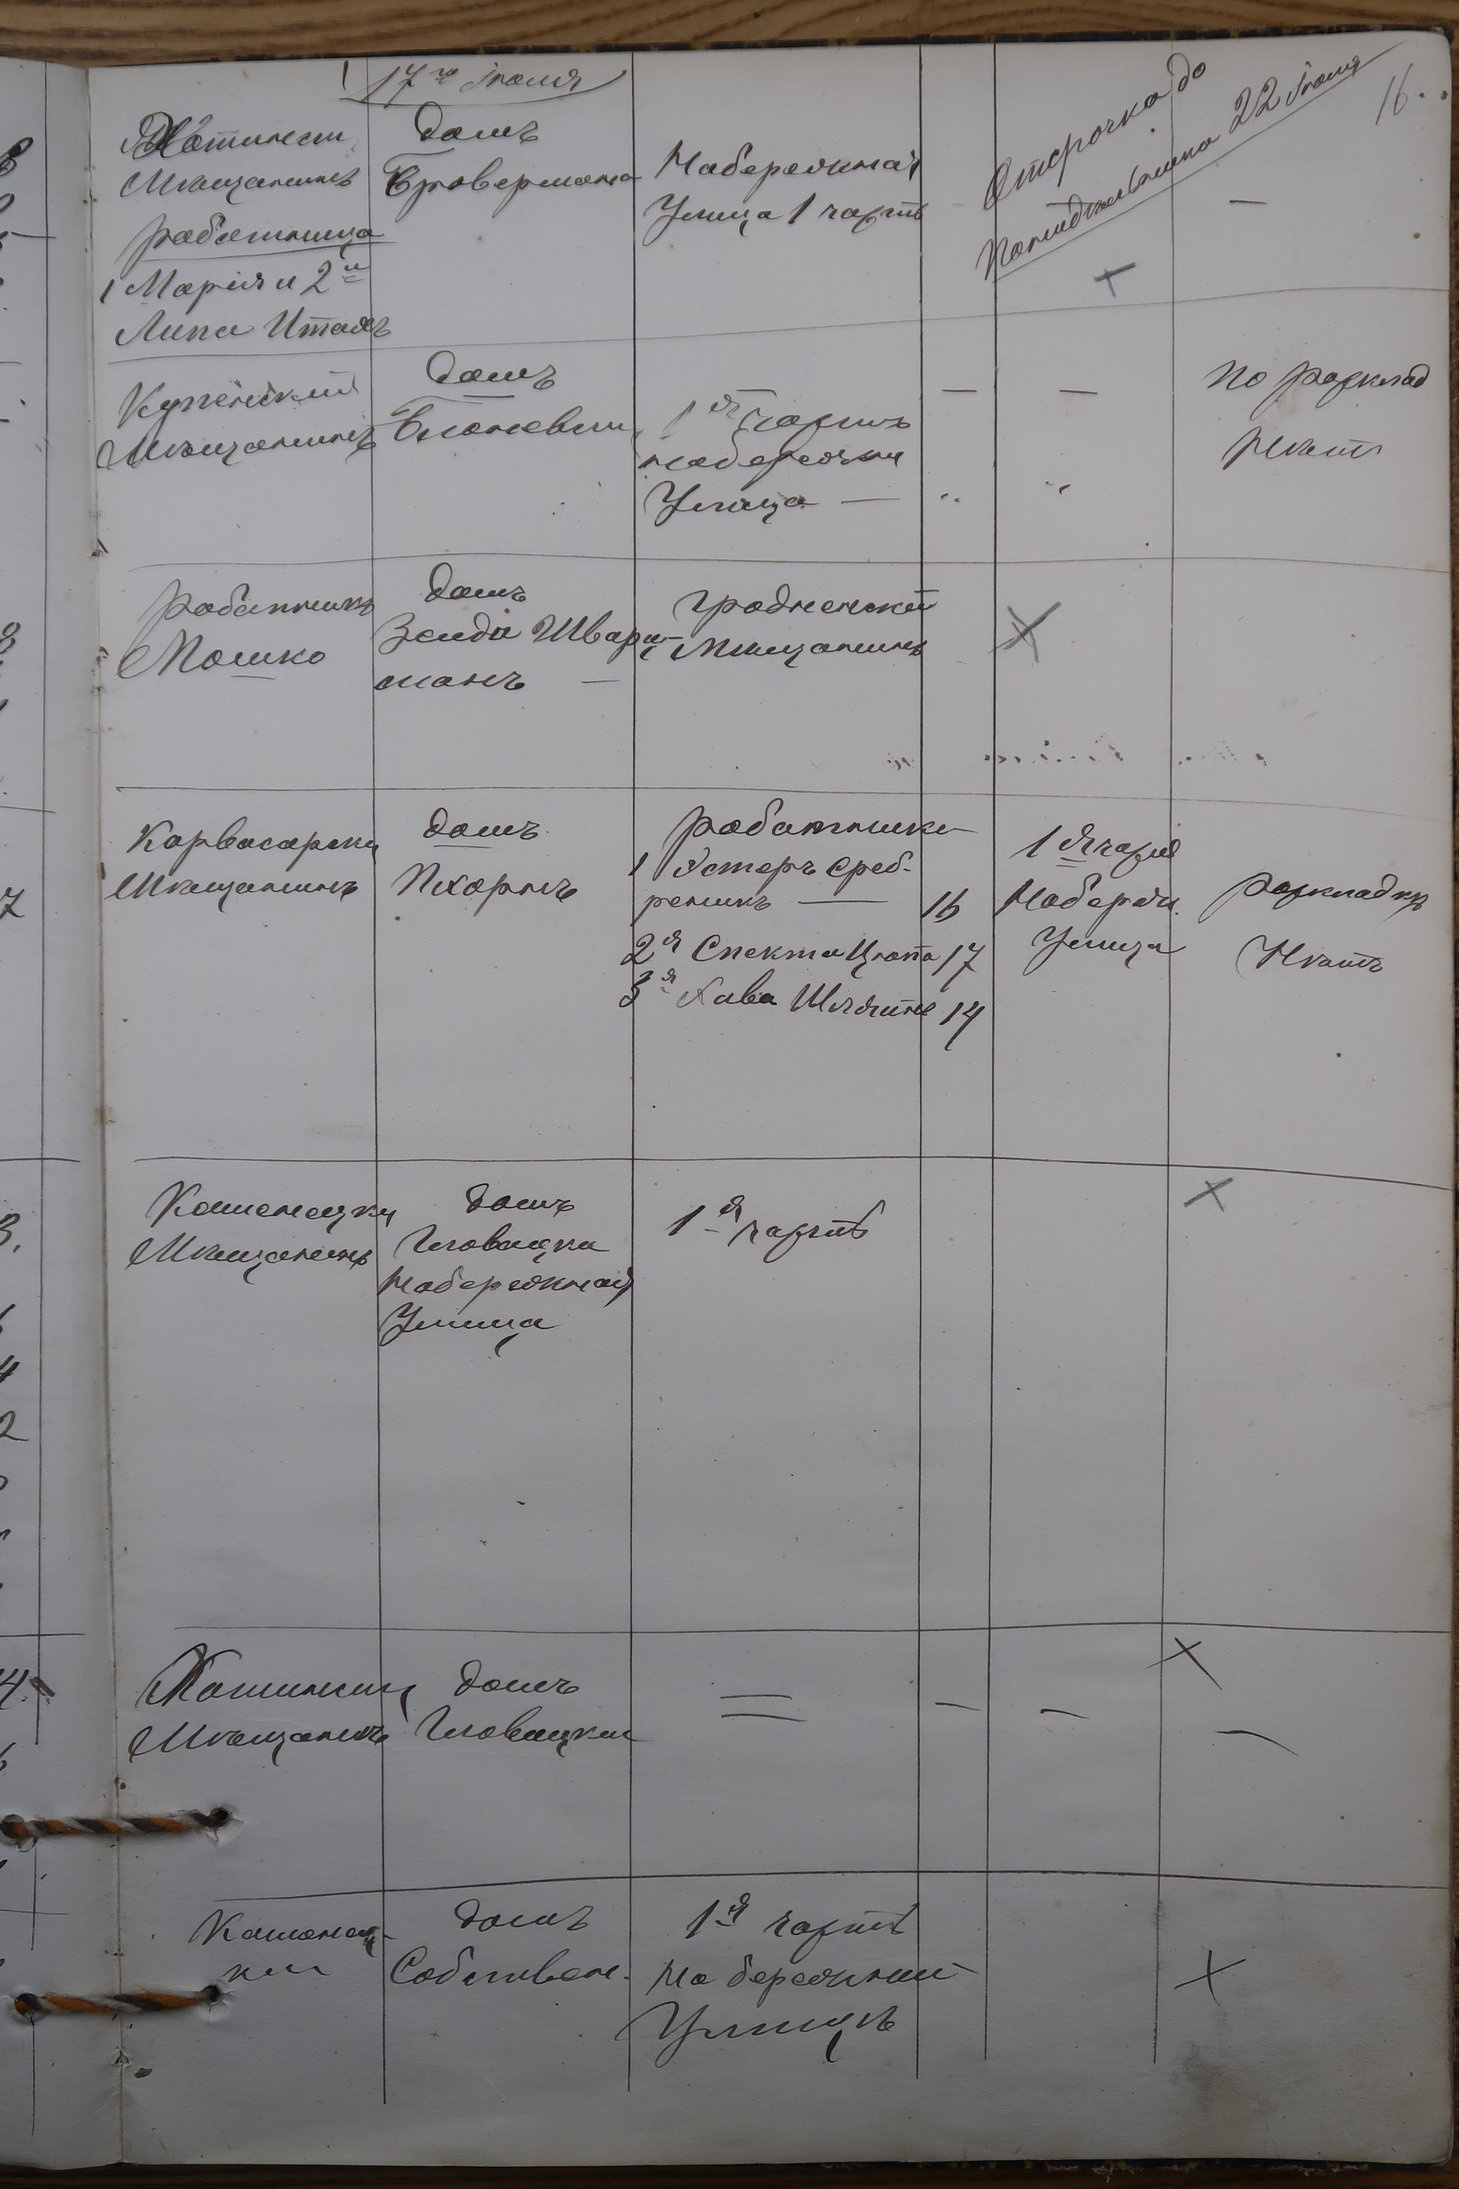 17го Іюля
16.
Хотинскій
Мѣщанинъ
работница
1 Марія и 2я
Липа Италъ
домъ
Гровермана
Набережная
Улица 1 часть
Отсрочка до
Понидѣльника 22 Іюля
—
Купенскій
Мѣщанинъ
домъ
1я часть
набережн
Улица —
— —
по расклад
Нѣтъ
работникъ
Мошко
домъ
Зейди Шварц-
манъ —
гродненскій
Мѣщанинъ
Карвасарскій
Мѣщанинъ
домъ
Пхорнъ
работники
1 Эстеръ Среб-
реникъ — 16
2я Спекта Цапа 17
3я Хава 14
1я часть
Набереж.
Улица
раскладкѣ
Нѣтъ
Каменецкій
Мѣщанинъ
домъ
Гловацки
Набережная
Улица
1я часть
Хотинскій
Мѣщанинъ
домъ
Гловацкій
— — —
Каменец-
кій
домъ
Собствен.
1я часть
На бережной
Улицѣ